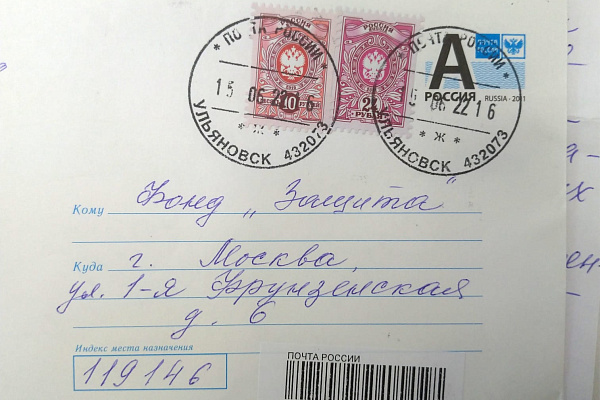 РОССИЯ
10 РУБЛЕЙ
РОССИЯ
РУБЛЕЙ
А
РОССИЯ RUSSIA - 2011
* ПОЧТА РОССИИ *
15 06 22 16
* Ж *
УЛЬЯНОВСК 432073
ПОЧТА РОССИИ *
06 22 16
* Ж *
УЛЬЯНОВСК 432073
Кому Фонд „Защита“
Куда г. Москва,
ул. 1-я Фрунзенская
д. 6
Индекс места назначения
119146
ПОЧТА РОССИИ